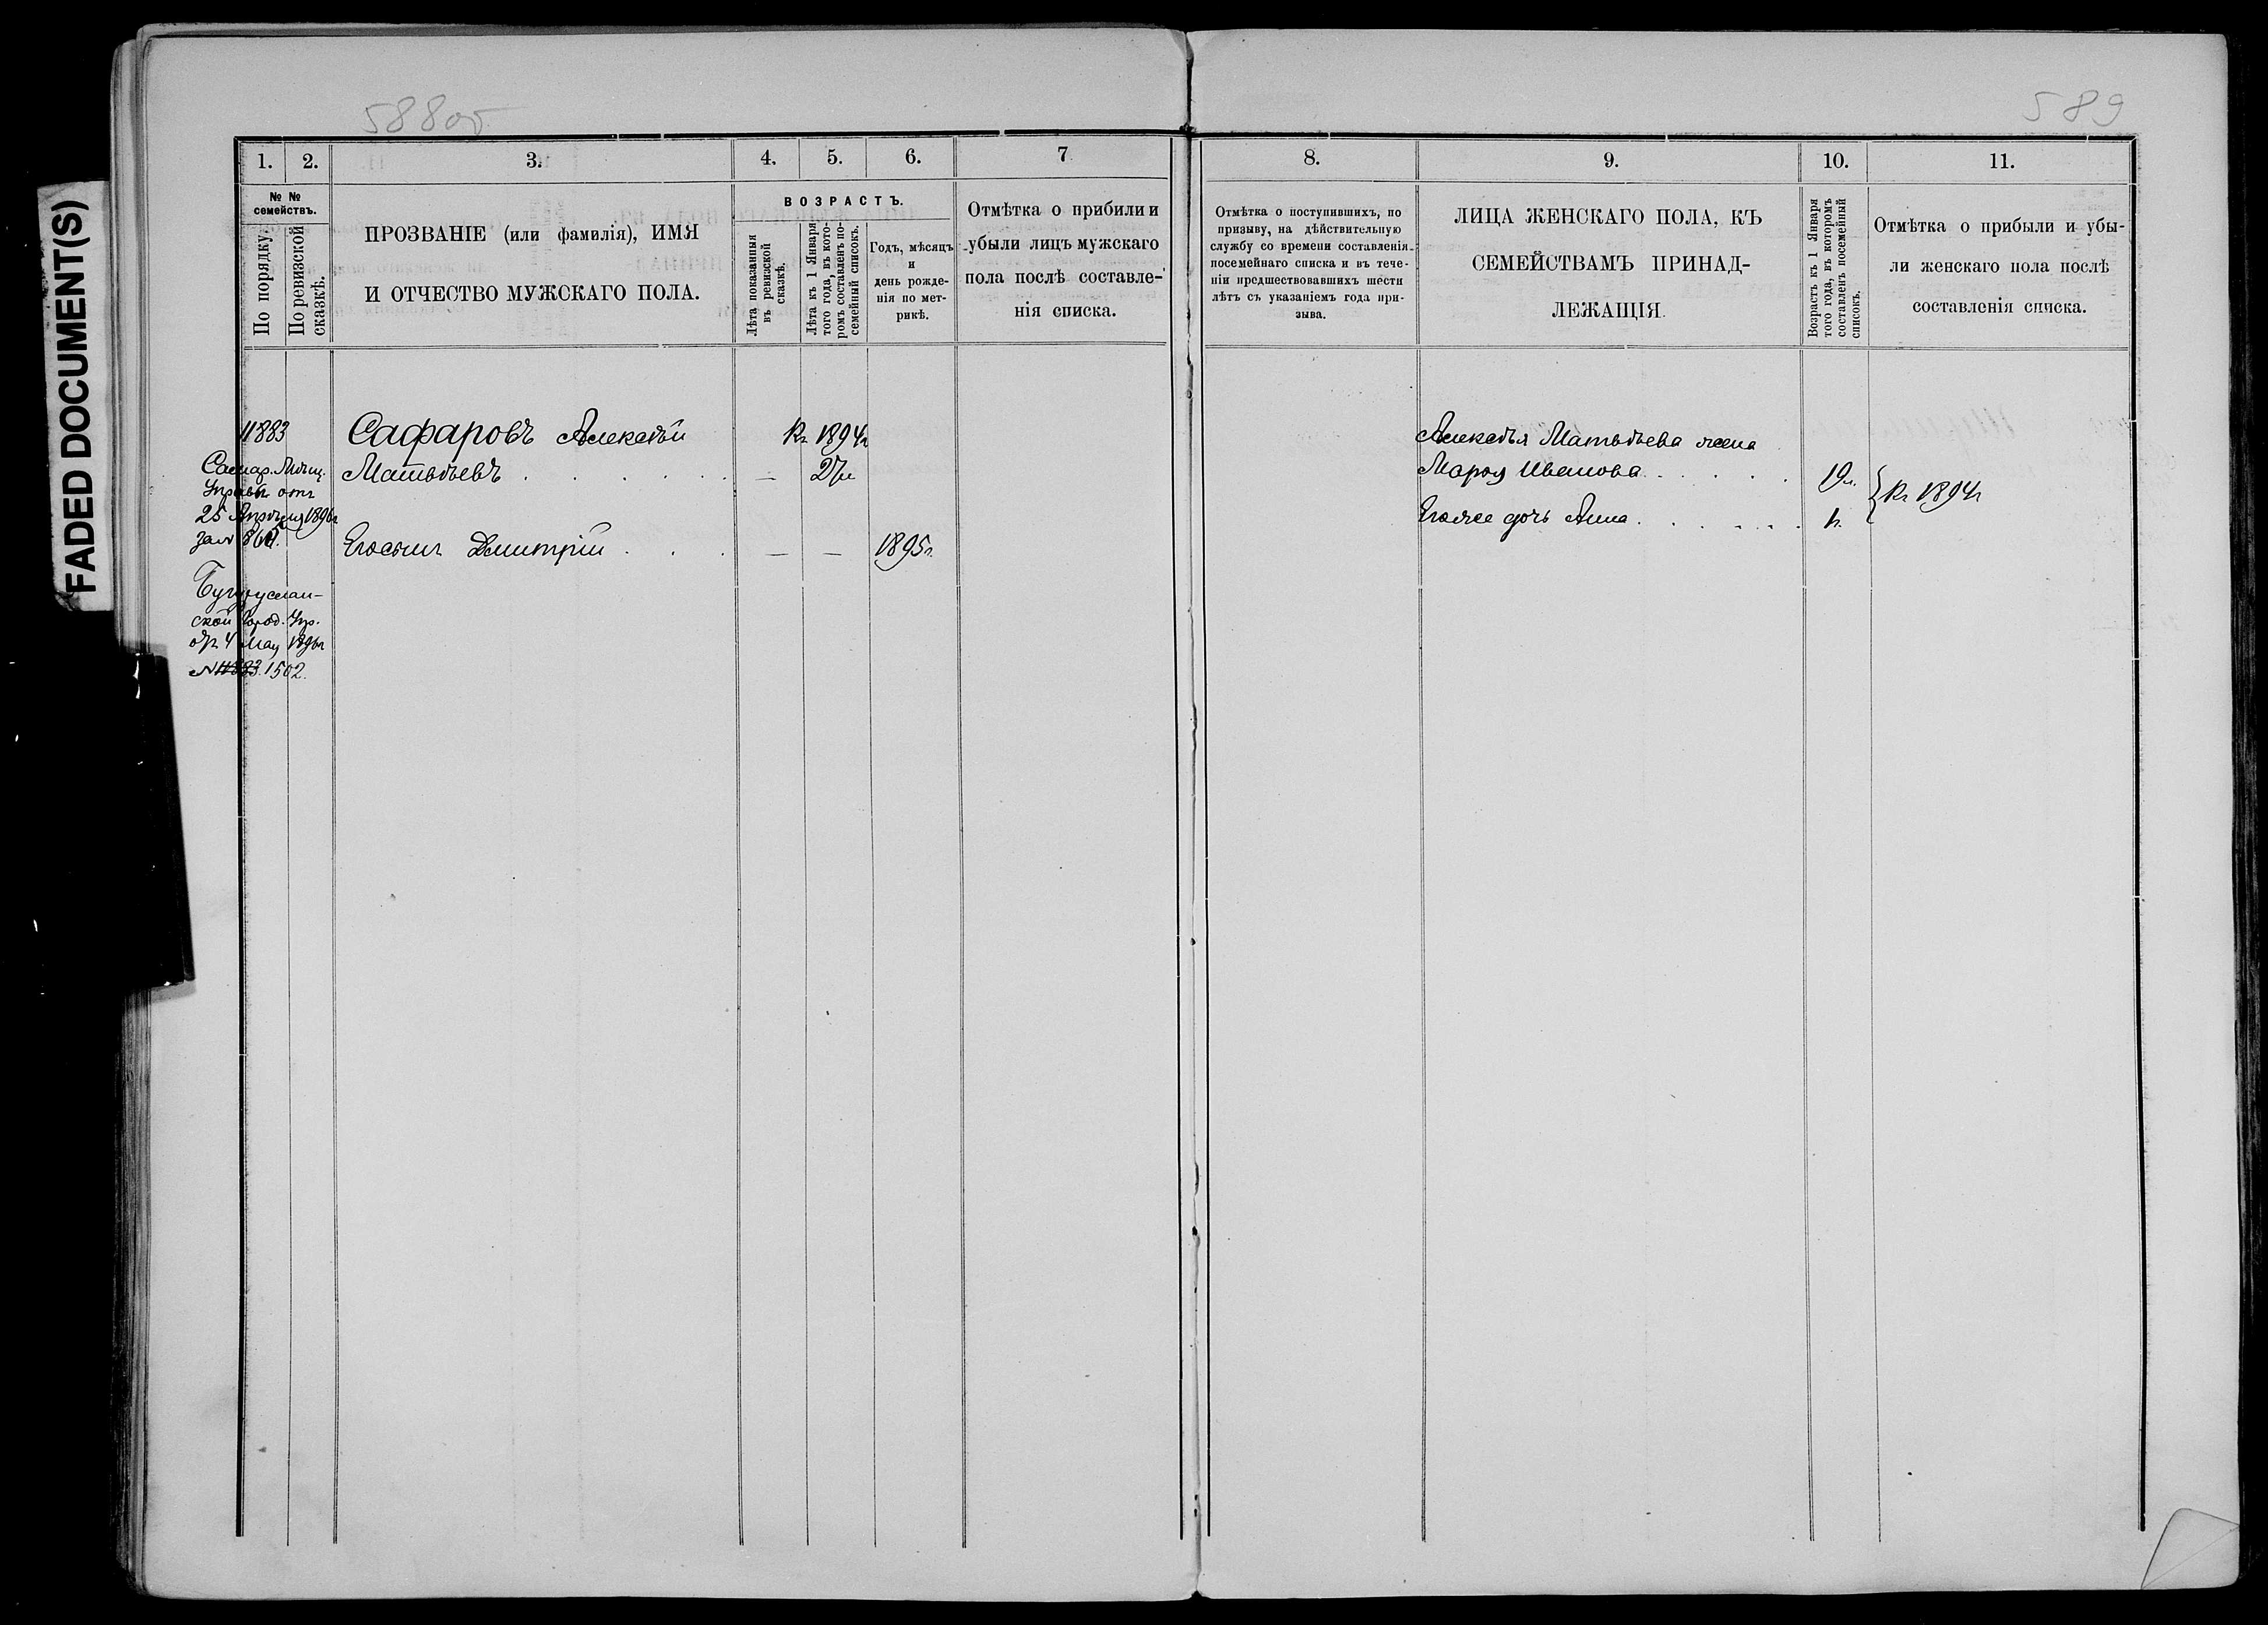 FADED DOCUMENT(S)
588об
589
1.
2.
3.
4.
5.
6.
7
№ №
семействъ.
По порядку.
По ревизской
сказкѣ.
ПРОЗВАНІЕ (или фамилія), ИМЯ
И ОТЧЕСТВО МУЖСКАГО ПОЛА.
ВОЗРАСТЪ.
Лѣта показанныя
въ ревизской
сказкѣ.
Лѣта къ 1 Января
того года, въ кото-
ромъ составленъ по-
семейный списокъ.
Годъ, мѣсяцъ
и
день рожде-
нія по мет-
рикѣ.
Отмѣтка о прибыли и
убыли лицъ мужскаго
пола послѣ составле-
нія списка.
11883
Самар. Мѣщ.
Управы отъ
25 Апрѣля 1896г
за №
Бугуруслан-
ской Город. Упр.
отъ 4 Мая 1896г
№ 11883. 1502.
Сафаровъ Алексѣй
Матвѣевъ . . . . . .
— 27л
Къ 1894г
Егосынъ Дмитрій . . .
— — 1895г.
8.
9.
10.
11.
Отмѣтка о поступившихъ, по
призыву, на дѣйствительную
службу со времени составленія
посемейнаго списка и въ тече-
ніи предшествовавшихъ шести
лѣтъ съ указаніемъ года при-
зыва.
ЛИЦА ЖЕНСКАГО ПОЛА, КЪ
СЕМЕЙСТВАМЪ ПРИНАД-
ЛЕЖАЩІЯ.
Возрастъ къ 1 Января
того года, въ которомъ
составленъ посемейный
списокъ.
Отмѣтка о прибыли и убы-
ли женскаго пола послѣ
составленія списка.
Алексѣя Матвѣева жена
Марья Иванова . . . . . 19л.
Егоже дочь Анна . . . . . . 1г.
Къ 1894г